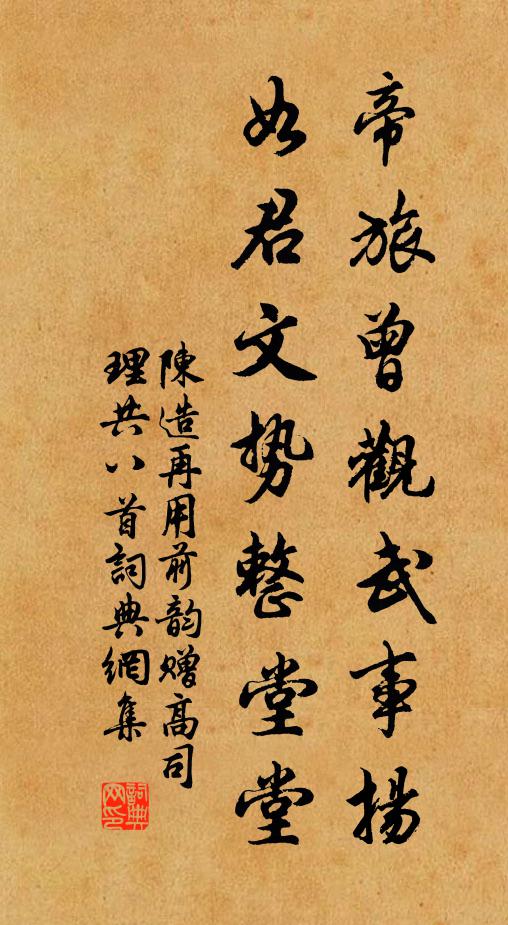 帝旅曾觀武事揚
如君文势整堂堂
陳造再用前韵赠高司
理共八首詞典網集
詞典网印